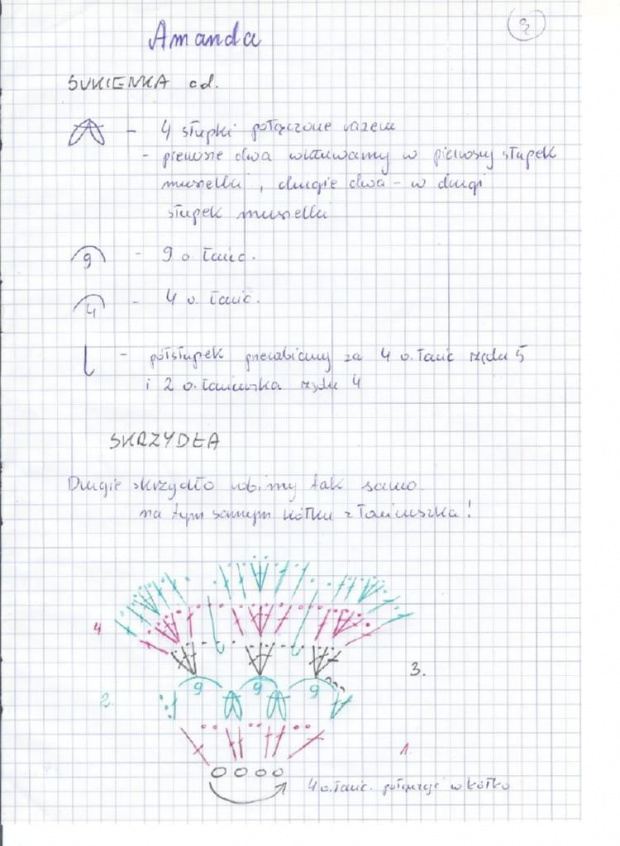 2
Amanda
SUKIENKA cd.
- 4 słupki połączone razem
- pierwsze dwa wkłuwamy w pierwszy słupek
muszelki, drugie dwa - w drugi
słupek muszelki
9 - 9 o. łańc.
4 - 4 o. łańc.
- półsłupek przerabiamy za 4 o. łańc rzędu 5
i 2 o. łańcuszka rzędu 4
SKRZYDŁA
Drugie skrzydło robimy tak samo
na tym samym kółku z łańcuszka!
4
3.
9 9 9
2
1
4 o. łańc. połączyć w kółko